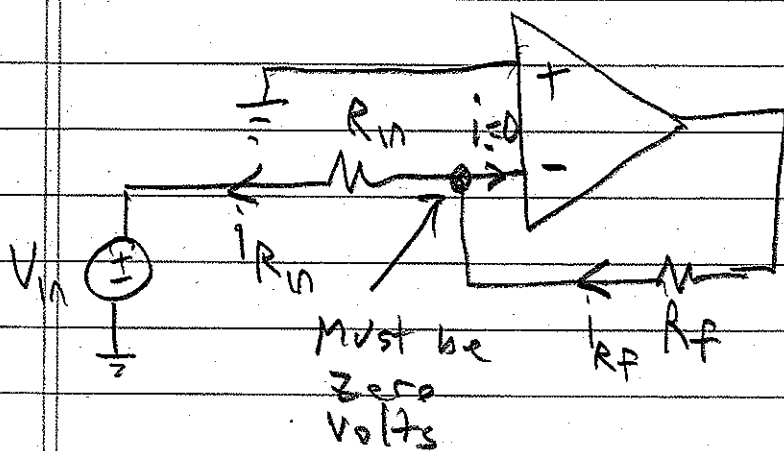 +
R_in
i=0
-
V_in
+
-
i_Rin
Must be
zero
volts
i_RF
R_f